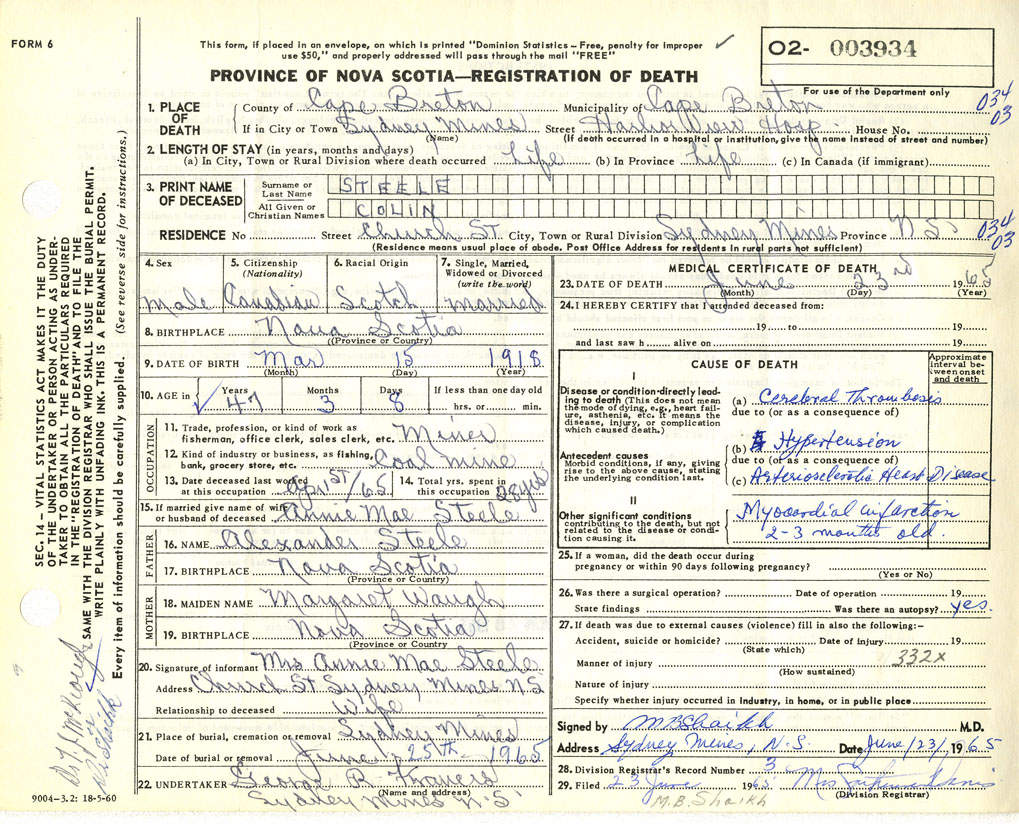 FORM 6
This form, if placed in an envelope, on which is printed "Dominion Statistics – Free, penalty for improper
use $50," and properly addressed will pass through the mail "FREE"
O2- 003934
PROVINCE OF NOVA SCOTIA—REGISTRATION OF DEATH
For use of the Department only
034
03
1. PLACE OF DEATH
County of Cape Breton Municipality of Cape Breton
If in City or Town Sydney Mines Street Harbor View Hosp. House No.
(Name) (If death occurred in a hospital or institution, give the name instead of street and number)
2. LENGTH OF STAY (in years, months and days)
(a) In City, Town or Rural Division where death occurred Life (b) In Province Life (c) In Canada (if immigrant)
3. PRINT NAME OF DECEASED
Surname or Last Name STEELE
All Given or Christian Names COLIN
RESIDENCE No Street Church St. City, Town or Rural Division Sydney Mines Province N S
034
03
(Residence means usual place of abode. Post Office Address for residents in rural parts not sufficient)
4. Sex Male
5. Citizenship (Nationality) Canadian
6. Racial Origin Scotch
7. Single, Married, Widowed or Divorced (write the word) Married
8. BIRTHPLACE Nova Scotia
(Province or Country)
9. DATE OF BIRTH Mar 15 1918
(Month) (Day) (Year)
10. AGE in Years 47 Months 3 Days 8 If less than one day old hrs. or min.
OCCUPATION
11. Trade, profession, or kind of work as
fisherman, office clerk, sales clerk, etc. Miner
12. Kind of industry or business, as fishing,
bank, grocery store, etc. Coal Mine
13. Date deceased last worked
at this occupation Apr 1st/65
14. Total yrs. spent in
this occupation 28 yrs
15. If married give name of wife
or husband of deceased Annie Mae Steele
FATHER
16. NAME Alexander Steele
17. BIRTHPLACE Nova Scotia
(Province or Country)
MOTHER
18. MAIDEN NAME Margaret Waugh
19. BIRTHPLACE Nova Scotia
(Province or Country)
20. Signature of informant Mrs Annie Mae Steele
Address Church St Sydney Mines N S
Relationship to deceased Wife
21. Place of burial, cremation or removal Sydney Mines
Date of burial or removal June 25th 1965
22. UNDERTAKER George R Francis
(Name and address)
Sydney Mines N.S
MEDICAL CERTIFICATE OF DEATH
23. DATE OF DEATH June 23rd 1965
(Month) (Day) (Year)
24. I HEREBY CERTIFY that I attended deceased from:
19 to 19
and last saw h alive on 19
CAUSE OF DEATH
Approximate interval between onset and death
I
Disease or condition directly leading to death (This does not mean the mode of dying, e.g., heart failure, asthenia, etc. It means the disease, injury, or complication which caused death.)
(a) Cerebral Thrombosis
due to (or as a consequence of)
Antecedent causes
Morbid conditions, if any, giving rise to the above cause, stating the underlying condition last.
(b) Hypertension
due to (or as a consequence of)
(c) Arteriosclerotic Heart Disease
II
Other significant conditions
contributing to the death, but not related to the disease or condition causing it.
Myocardial infarction
2-3 months old.
25. If a woman, did the death occur during
pregnancy or within 90 days following pregnancy?
(Yes or No)
26. Was there a surgical operation? Date of operation 19
State findings Was there an autopsy? yes
27. If death was due to external causes (violence) fill in also the following:-
Accident, suicide or homicide? Date of injury 19
(State which)
Manner of injury 332X
(How sustained)
Nature of injury
Specify whether injury occurred in Industry, in home, or in public place
Signed by M B Shaikh M.D.
Address Sydney Mines, N.S. Date June/23/ 1965
28. Division Registrar's Record Number 3
29. Filed 23 June 1965 Mrs
(Division Registrar)
M.B. Shaikh
SEC. 14—VITAL STATISTICS ACT MAKES IT THE DUTY
OF THE UNDERTAKER OR PERSON ACTING AS UNDERTAKER
TO OBTAIN ALL THE PARTICULARS REQUIRED
IN THE "REGISTRATION OF DEATH" AND TO FILE THE
SAME WITH THE DIVISION REGISTRAR WHO SHALL ISSUE THE BURIAL PERMIT.
WRITE PLAINLY WITH UNFADING INK. THIS IS A PERMANENT RECORD.
Every item of information should be carefully supplied. (See reverse side for instructions.)
or
9004-3.2: 18-5-60